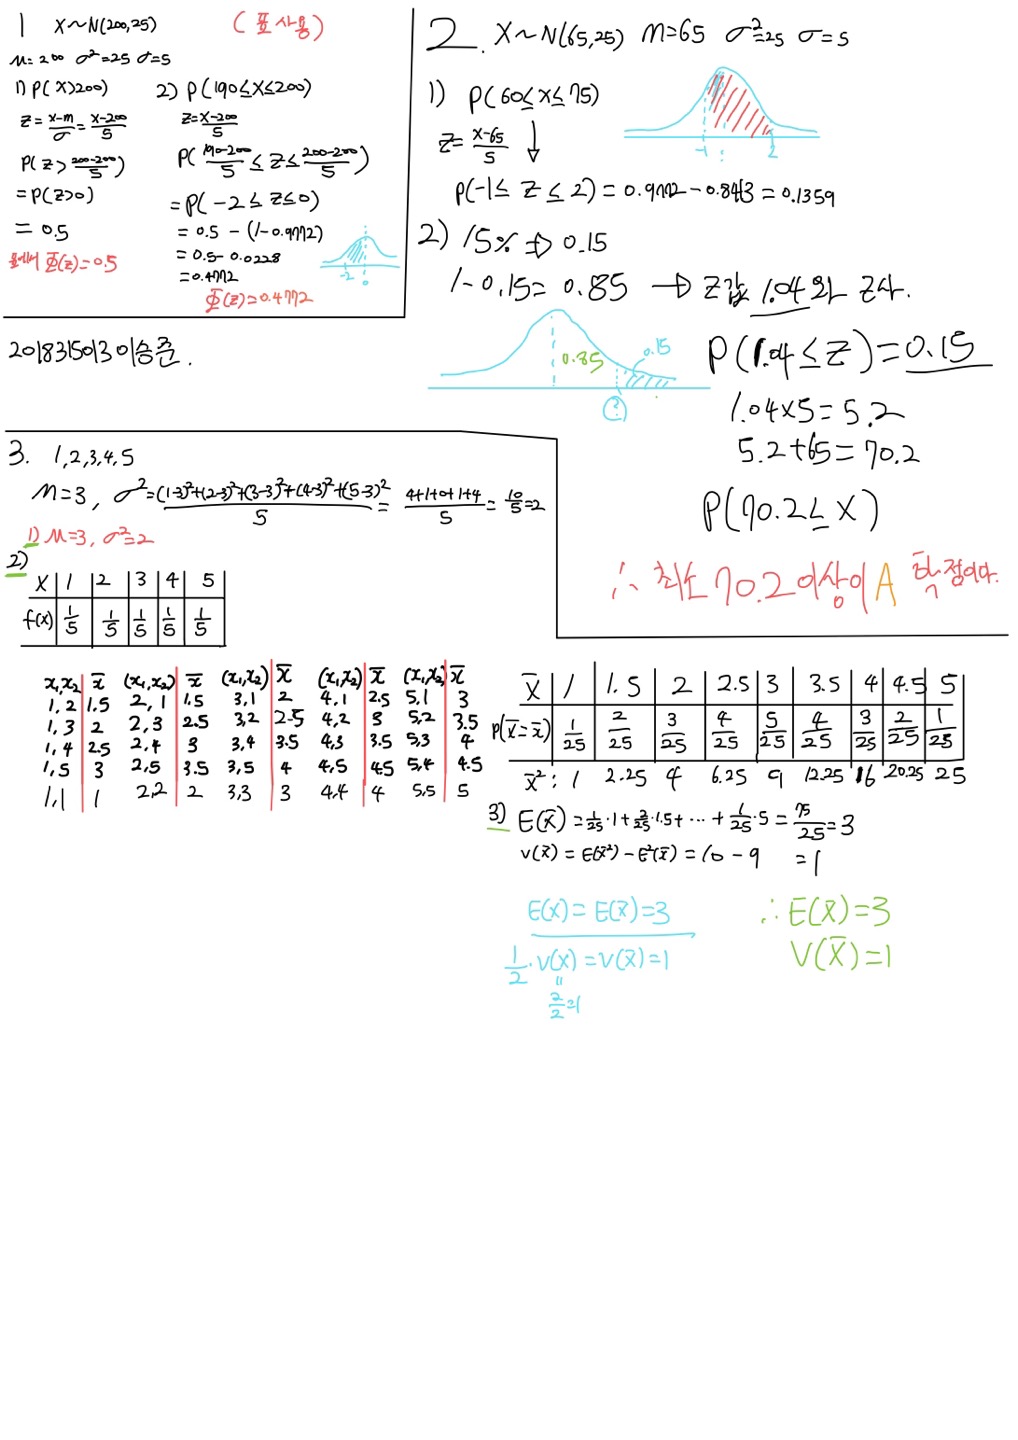 1 X~N(200,25) (표사용)
m=200 σ²=25 σ=5
1) P(X>200)
Z=\frac{x-m}{σ}=\frac{x-200}{5}
P(Z>\frac{200-200}{5})
=P(Z>0)
= 0.5
표에서 Φ(z)=0.5
2) P(190≤X≤200)
Z=\frac{x-200}{5}
P(\frac{190-200}{5}≤Z≤\frac{200-200}{5})
=P(-2≤Z≤0)
=0.5-(1-0.9772)
=0.5-0.0228
=0.4772
Φ(z)=0.4772
-2 0
2. X~N(65,25) m=65 σ²=25 σ=5
1) P(60≤X≤75)
Z=\frac{x-65}{5}
-1 2
P(-1≤Z≤2)=0.9772-0.8413=0.1359
2) 15% ⇒ 0.15
1-0.15=0.85 → Z값 1.04와 유사.
0.85 0.15
?
P(1.04≤Z)=0.15
1.04×5=5.2
5.2+65=70.2
P(70.2≤X)
∴ 최소 70.2 이상이 A 학점이다.
2018315013 이승준.
3. 1,2,3,4,5
m=3, σ²=\frac{(1-3)²+(2-3)²+(3-3)²+(4-3)²+(5-3)²}{5}=\frac{4+1+0+1+4}{5}=\frac{10}{5}=2
1) m=3, σ²=2
2)
X 1 2 3 4 5
f(x) \frac{1}{5} \frac{1}{5} \frac{1}{5} \frac{1}{5} \frac{1}{5}
x₁,x₂ x̄ (x₁,x₂) x̄ (x₁,x₂) x̄ (x₁,x₂) x̄ (x₁,x₂) x̄
1,2 1.5 2,1 1.5 3,1 2 4,1 2.5 5,1 3
1,3 2 2,3 2.5 3,2 2.5 4,2 3 5,2 3.5
1,4 2.5 2,4 3 3,4 3.5 4,3 3.5 5,3 4
1,5 3 2,5 3.5 3,5 4 4,5 4.5 5,4 4.5
1,1 1 2,2 2 3,3 3 4,4 4 5,5 5
X̄ 1 1.5 2 2.5 3 3.5 4 4.5 5
P(X̄=x̄) \frac{1}{25} \frac{2}{25} \frac{3}{25} \frac{4}{25} \frac{5}{25} \frac{4}{25} \frac{3}{25} \frac{2}{25} \frac{1}{25}
x̄²: 1 2.25 4 6.25 9 12.25 16 20.25 25
3) E(X̄)=\frac{1}{25}·1+\frac{2}{25}·1.5+…+\frac{1}{25}·5=\frac{75}{25}=3
V(x̄)=E(x̄²)-E²(x̄)=10-9 =1
E(x)=E(x̄)=3
\frac{1}{2}·V(x)=V(x̄)=1
"
\frac{2}{2}=1
∴E(X̄)=3
V(X̄)=1